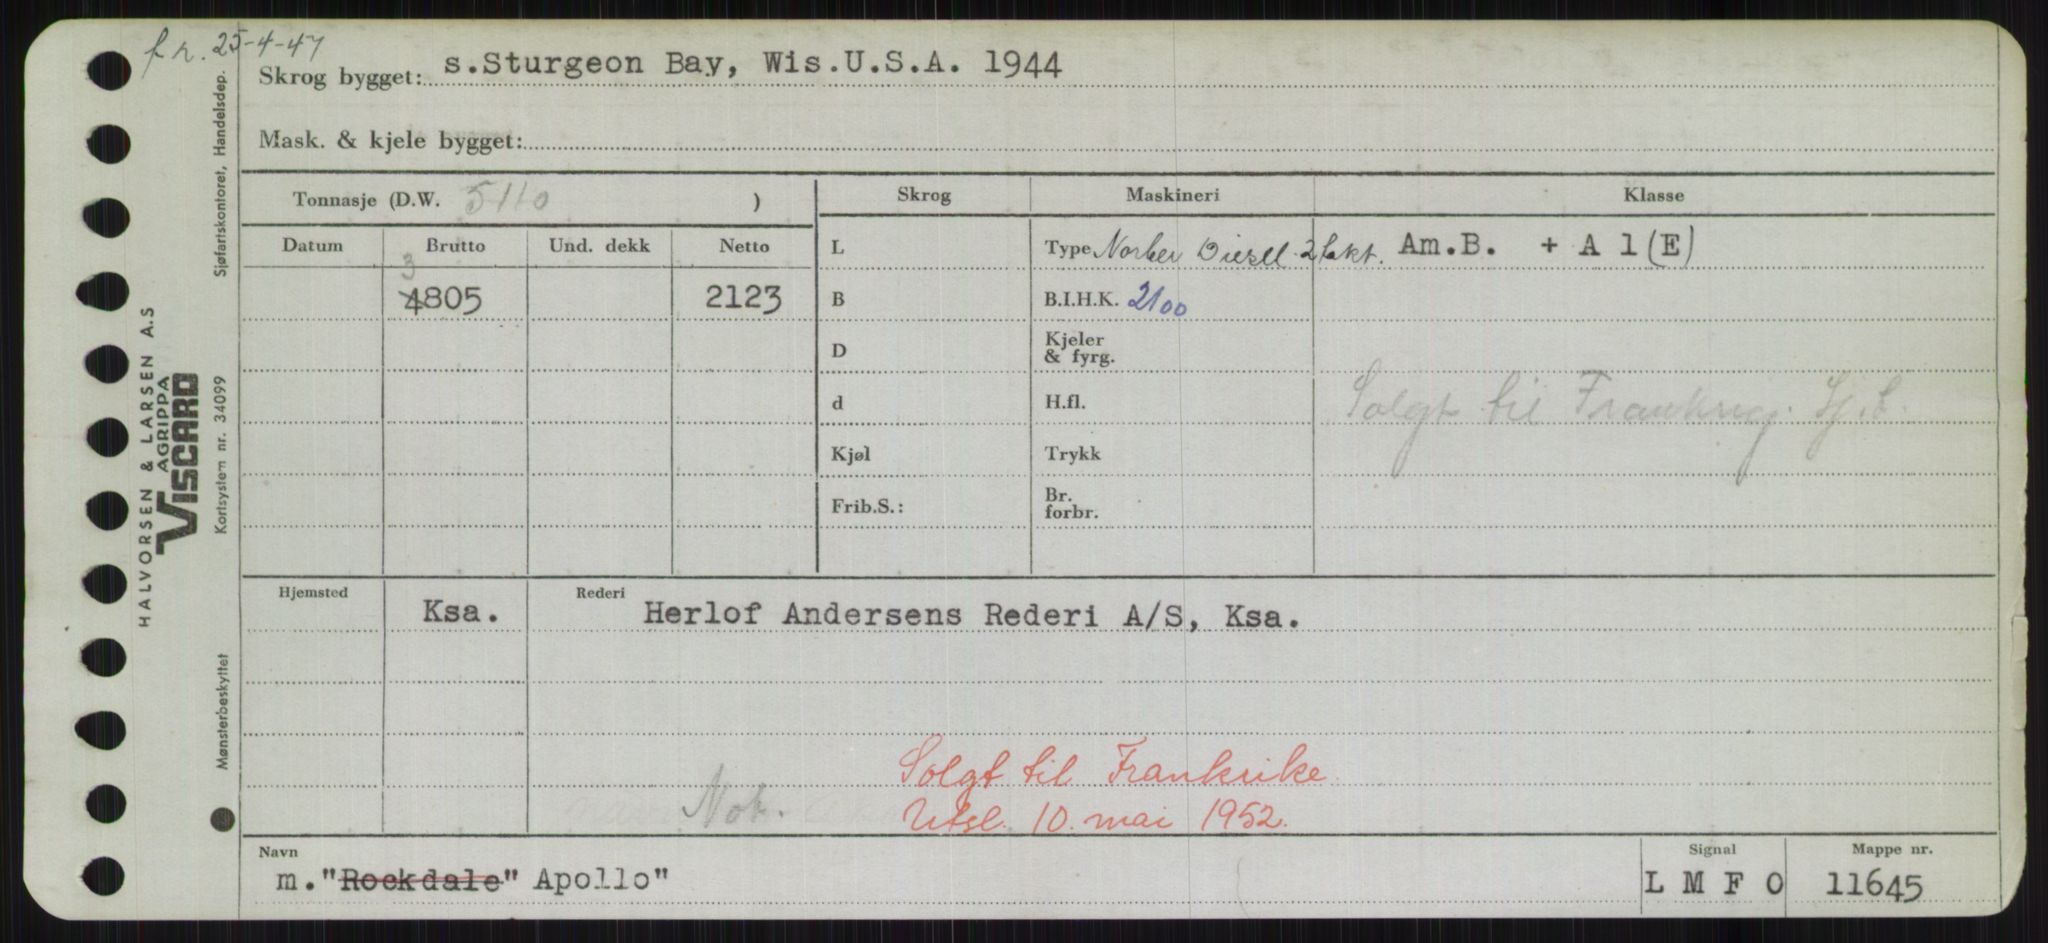 fr. 25-4-47
Skrog bygget: s.Sturgeon Bay, Wis.U.S.A. 1944
Mask. & kjele bygget:
Tonnasje (D.W. 5110 )
Skrog Maskineri Klasse
Datum Brutto Und. dekk Netto
L Type Norber Diesel 2 takt. Am.B. + A 1 (E)
3
4805 2123
B B.I.H.K. 2100
D Kjeler & fyrg.
d H.fl. Solgt til Frankrig.
Kjøl Trykk
Frib.S.: Br. forbr.
Hjemsted Ksa. Rederi Herlof Andersens Rederi A/S, Ksa.
Solgt til Frankrike
Not. Utsl. 10. mai 1952.
Navn Signal Mappe nr.
m."Rockdale" Apollo" L M F O 11645
HALVORSEN & LARSEN A.S
AGRIPPA
VISCARD
Mønsterbeskyttet Kortsystem nr. 34099 Sjøfartskontoret, Handelsdep.